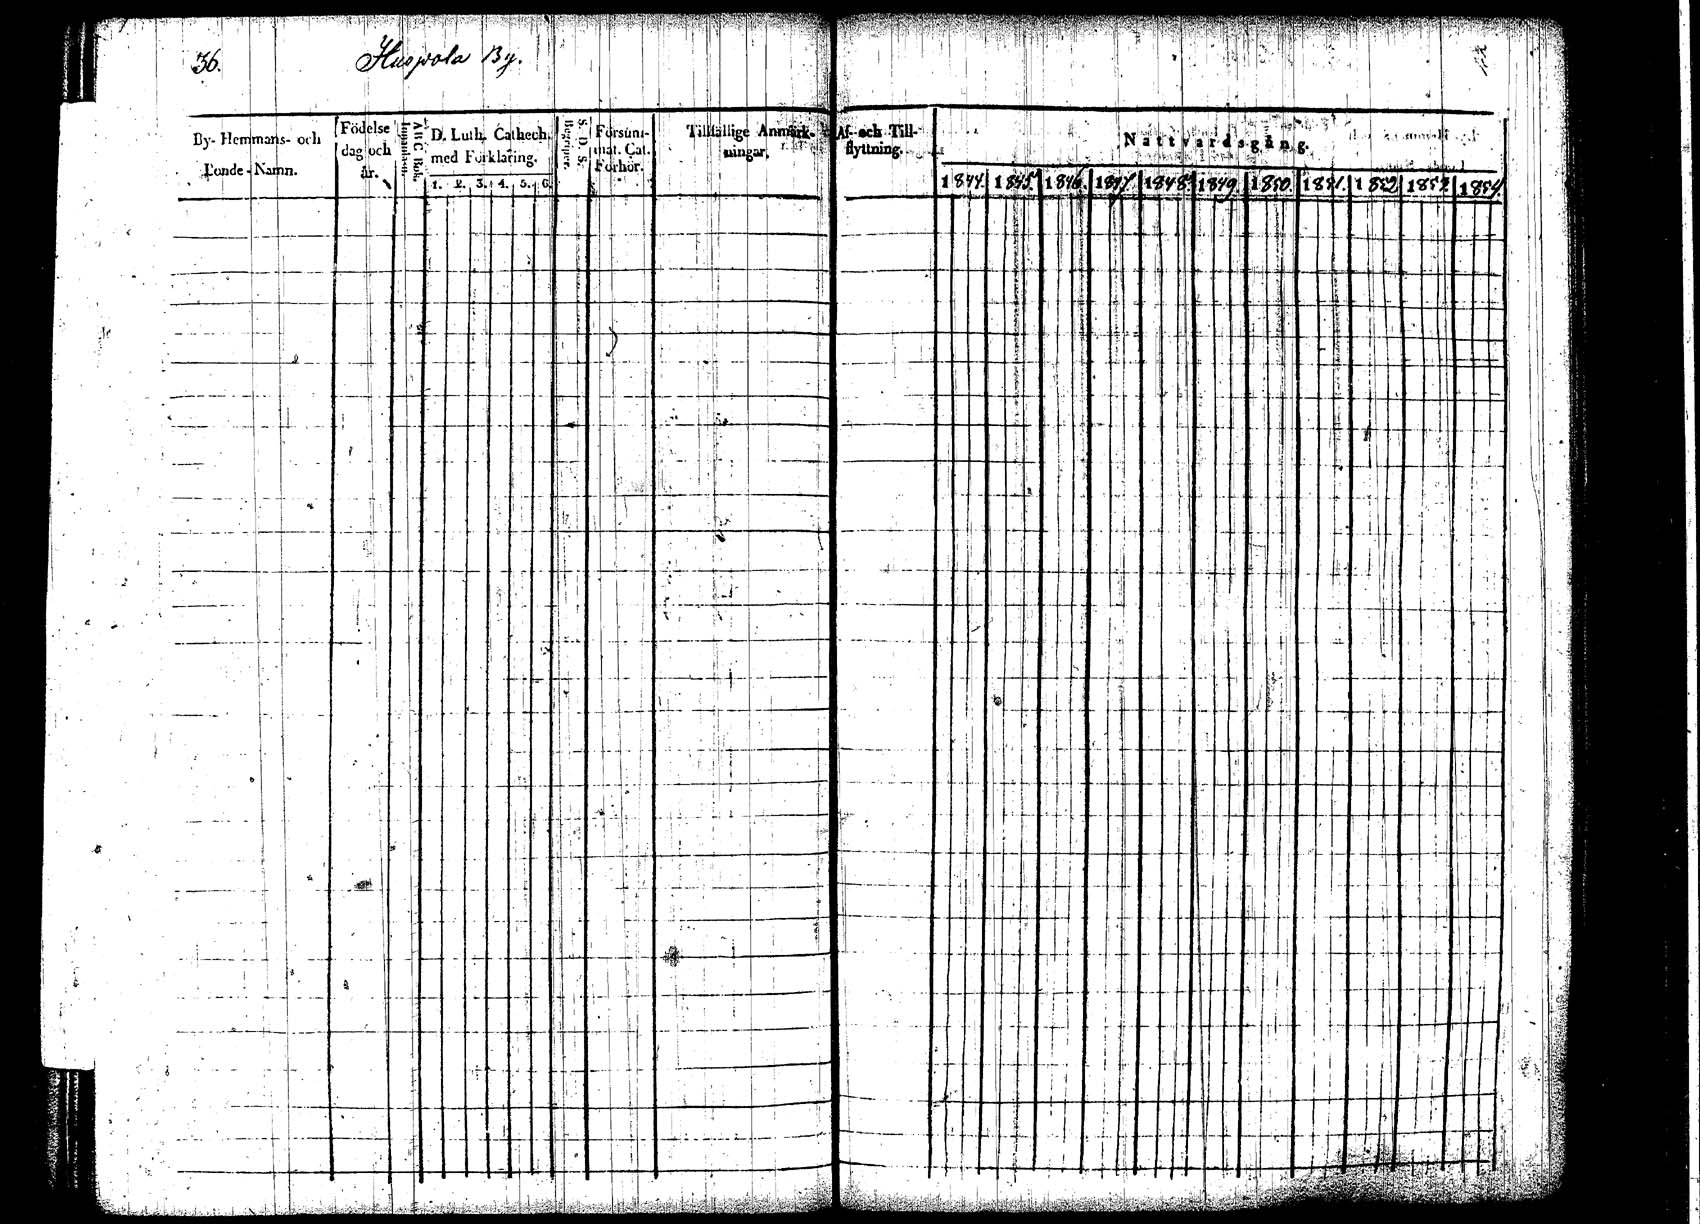 36.
Huspola By.
By- Hemmans- och
Bonde-Namn.
Födelse
dag och
år.
A B C Bok.
D. Luth. Cathech.
med Förklaring.
1. 2. 3. 4. 5. 6.
S. D. S.
Begriper.
Försum-
mat. Cat.
Förhör.
Tillfällige Anmärk-
ningar.
Af- och Till-
flyttning.
Nattvardsgång.
1844. 1845. 1846. 1847. 1848. 1849. 1850. 1851. 1852 1853. 1854.